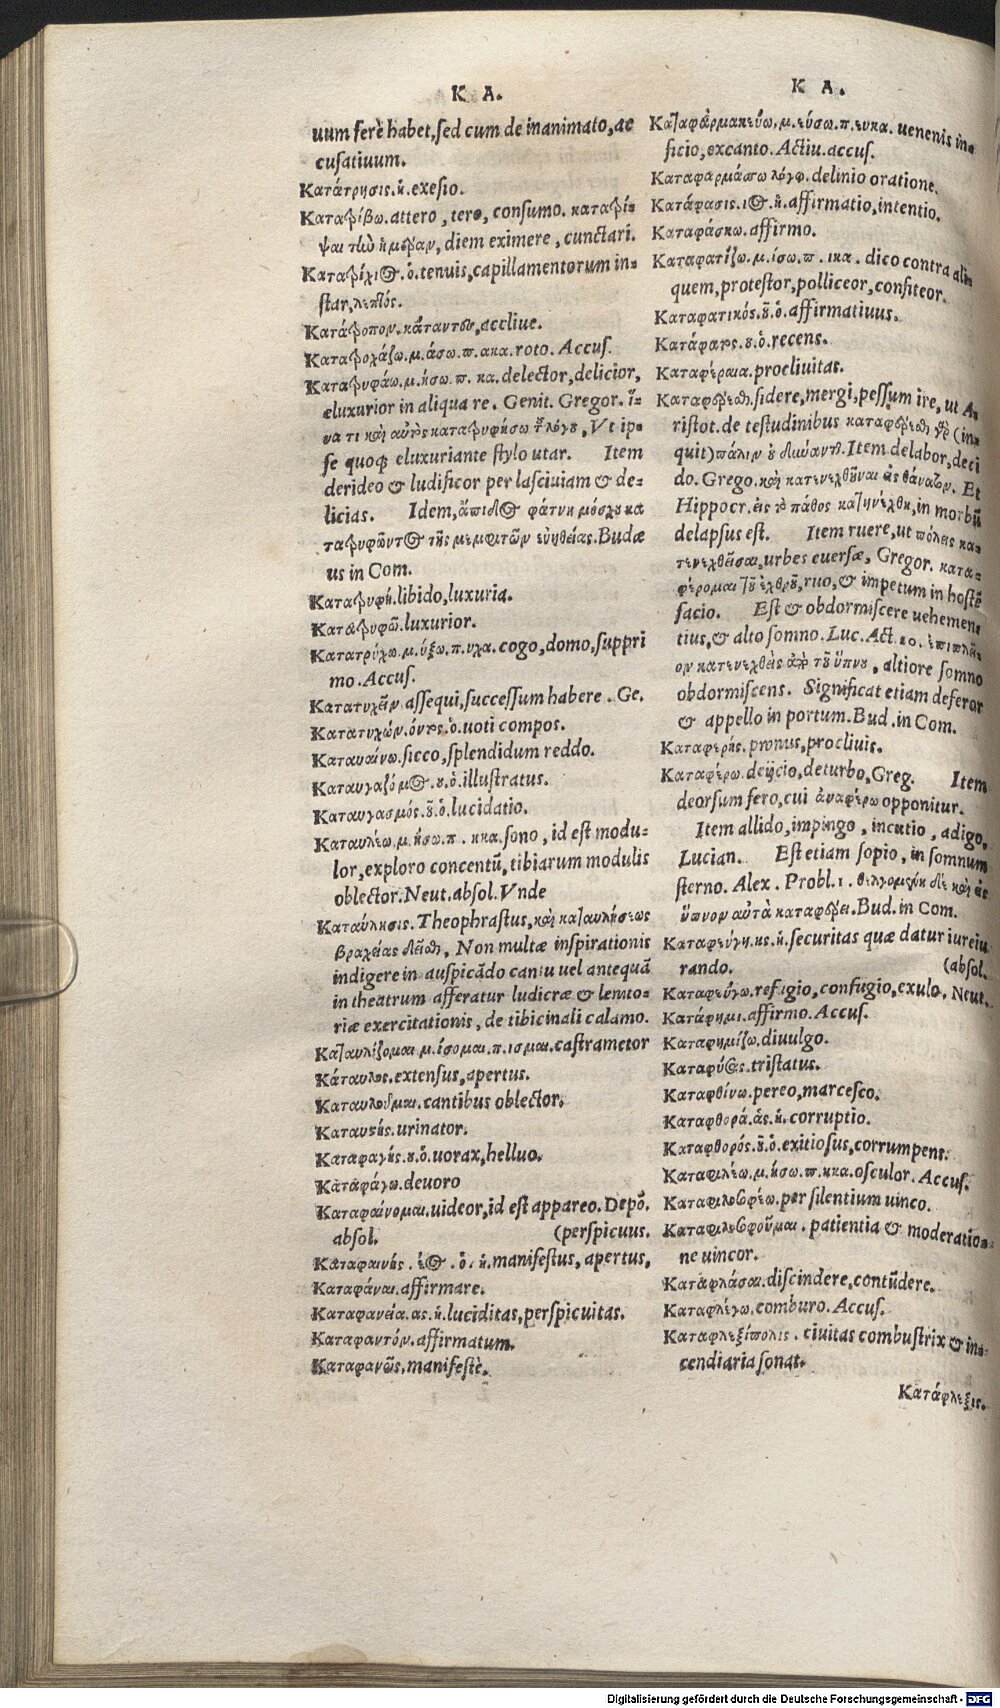 K A.
uum ferè habet, sed cum de inanimato, ac
cusatiuum.
Κατάτρησις. ἡ. exesio.
Κατατρίβω. attero, tero, consumo. κατατρί-
ψαι τὴν ἡμέραν, diem eximere, cunctari.
Κατατρίχιος. ὁ. tenuis, capillamentorum in-
star, λεπτός.
Κατάτροπον. κάταντον, accliue.
Κατατροχάζω. μ. άσω. π. ακα. roto. Accus.
Κατατρυφάω. μ. ήσω. π. κα. delector, delicior,
eluxurior in aliqua re. Genit. Gregor. ἵ-
να τι καὶ αὐτὸς κατατρυφήσω τοῦ λόγου, Vt ip-
se quoque eluxuriante stylo utar. Item
derideo & ludificor per lasciuiam & de-
licias. Idem, ἄπιδος φάτνη μόσχου κα
τατρυφῶντος τῆς μεμφιτῶν εὐηθείας. Budæ
us in Com.
Κατατρυφή. libido, luxuria.
Κατατρυφῶ. luxurior.
Κατατρύχω. μ. ύξω. π. υχα. cogo, domo, suppri
mo. Accus.
Κατατυχεῖν assequi, successum habere. Ge.
Κατατυχών. όντος. ὁ. uoti compos.
Καταυαίνω. sicco, splendidum reddo.
Καταυγαζόμενος. ου. ὁ. illustratus.
Καταυγασμός. οῦ. ὁ. lucidatio.
Καταυλέω. μ. ήσω. π. ηκα. sono, id est modu-
lor, exploro concentũ, tibiarum modulis
oblector. Neut. absol. Vnde
Καταύλησις. Theophrastus, καὶ καταυλήσεως
βραχείας δεῖσθαι, Non multæ inspirationis
indigere in auspicãdo cantu uel antequã
in theatrum afferatur ludicræ & lenito-
riæ exercitationis, de tibicinali calamo.
Καταυλίζομαι μ. ίσομαι. π. ισμαι. castrametor
Κάταυλος. extensus, apertus.
Καταυλοῦμαι. cantibus oblector.
urinator.
Καταφαγής. ου. ὁ. uorax, helluo.
Καταφάγω. deuoro
Καταφαίνομαι. uideor, id est appareo. Depõ.
absol. (perspicuus.
Καταφανής. έος. ὁ. ἡ. manifestus, apertus,
Καταφάναι. affirmare.
Καταφανεία. ας. ἡ. luciditas, perspicuitas.
Καταφαντόν. affirmatum.
Καταφανῶς. manifestè.
K A.
Καταφαρμακεύω. μ. εύσω. π. ευκα. uenenis in-
ficio, excanto. Actiu. accus.
Καταφαρμάσσω λόγῳ. delinio oratione.
Κατάφασις. ιος. ἡ. affirmatio, intentio.
Καταφάσκω. affirmo.
Καταφατίζω. μ. ίσω. π. ικα. dico contra ali-
quem, protestor, polliceor, confiteor.
Καταφατικός. οῦ. ὁ. affirmatiuus.
ου. ὁ. recens.
Καταφέραια. procliuitas.
Καταφέρεσθαι. sidere, mergi, pessum ire, ut A-
ristot. de testudinibus καταφέρεσθαι γὰρ (in-
quit) πάλιν οὐ δύνανται. Item delabor, deci
do. Grego. καὶ κατενεχθῆναι εἰς θάνατον. Et
Hippocr. εἰς τὸ πάθος κατηνέχθη, in morbũ
delapsus est. Item ruere, ut πόλεις κα-
τενεχθεῖσαι, urbes euersæ, Gregor. κατα-
φέρομαι τοῦ ἐχθροῦ, ruo, & impetum in hostẽ
facio. Est & obdormiscere uehemen-
tius, & alto somno. Luc. Act. 20. ἐπιπλεῖ-
ον κατενεχθεὶς ἀπὸ τοῦ ὕπνου, altiore somno
obdormiscens. Significat etiam deferor
& appello in portum. Bud. in Com.
Καταφερής. pronus, procliuis.
Καταφέρω. deijcio, deturbo, Greg. Item
deorsum fero, cui ἀναφέρω opponitur.
Item allido, impingo, incutio, adigo,
Lucian. Est etiam sopio, in somnum
sterno. Alex. Probl. 1. θελγομένη δὲ καὶ εἰς
ὕπνον αὐτὰ καταφέρει. Bud. in Com.
Καταφεύγη. ης. ἡ. securitas quæ datur iureiu
rando. (absol.
Καταφεύγω. refugio, confugio, exulo. Neut.
Κατάφημι. affirmo. Accus.
Καταφημίζω. diuulgo.
tristatus.
Καταφθίνω. pereo, marcesco.
Καταφθορά. άς. ἡ. corruptio.
Καταφθορός. οῦ. ὁ. exitiosus, corrumpens.
Καταφιλέω. μ. ήσω. π. ηκα. osculor. Accus.
per silentium uinco.
patientia & moderatio-
ne uincor.
Καταφλάσαι. discindere, contũdere.
Καταφλέγω. comburo. Accus.
Καταφλεξίπολις. ciuitas combustrix & in-
cendiaria sonat.
Κατάφλεξις.
Digitalisierung gefördert durch die Deutsche Forschungsgemeinschaft - DFG